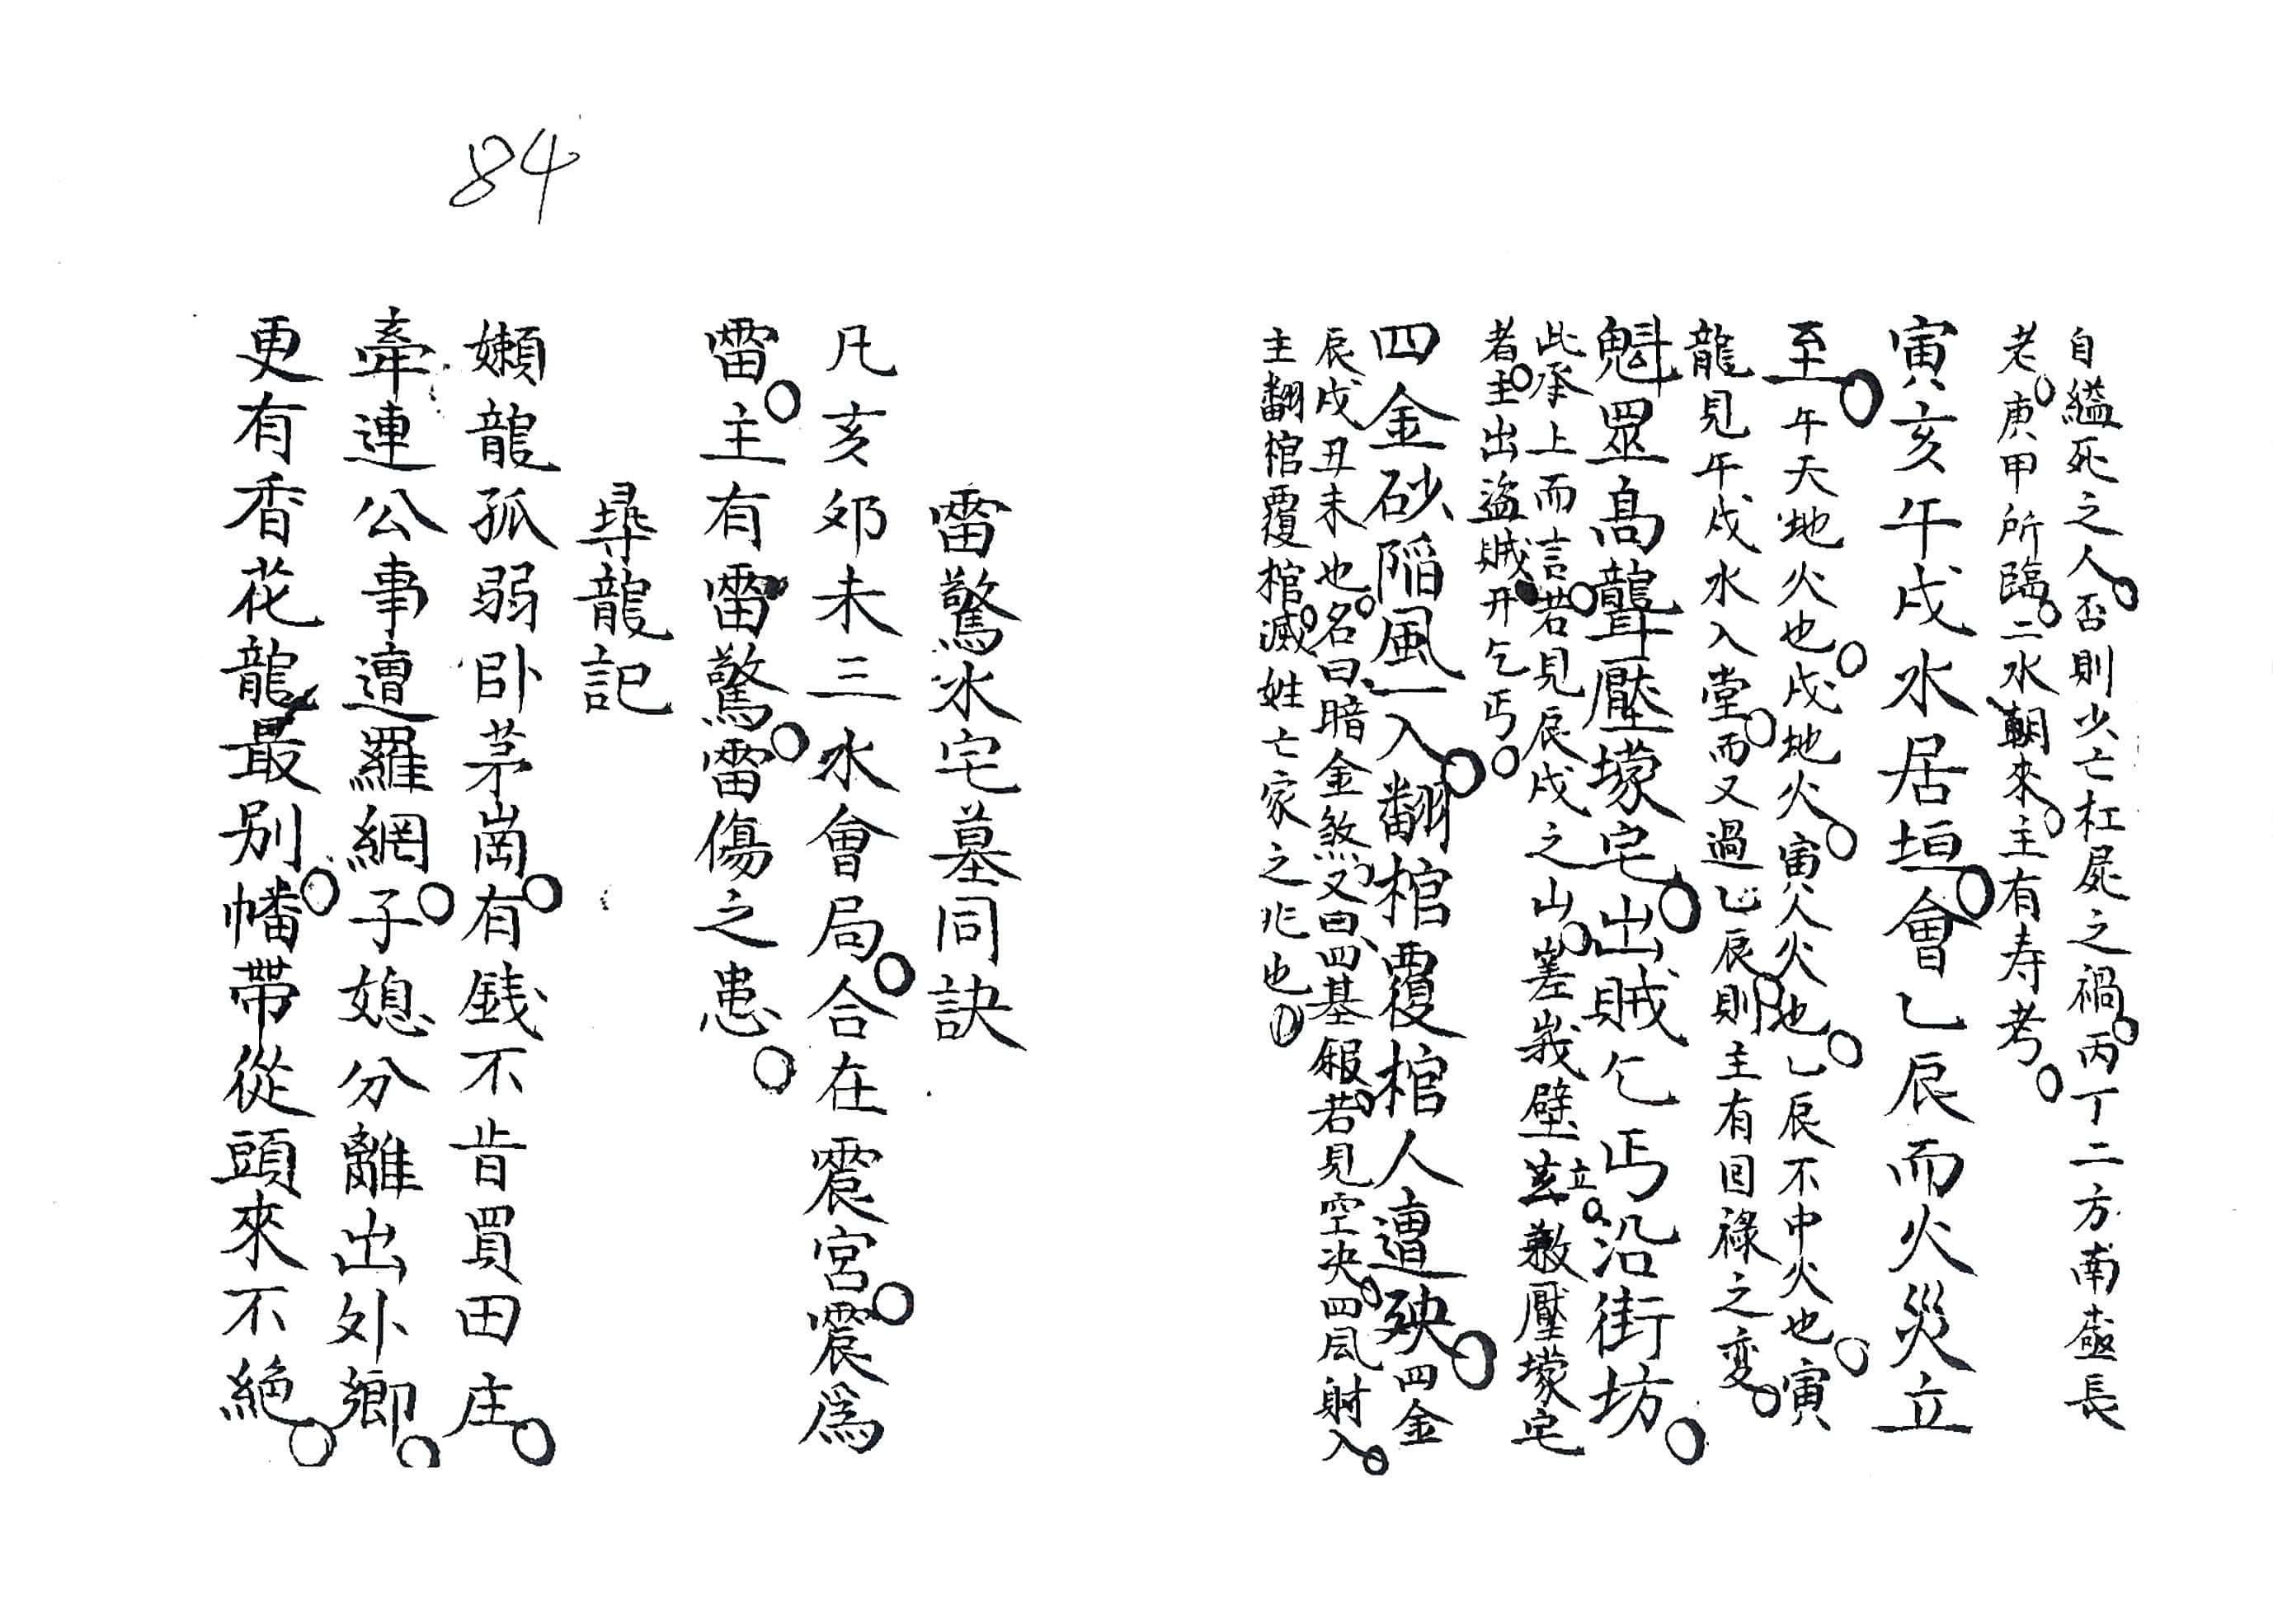 84
自縊死之人。否則少亡杠屍之禍。丙丁二方南極長
老。庚甲所臨。二水朝來。主有寿考。
寅亥午戌水居垣。會乙辰而火災立
至。午天地火也。戌地火。寅人火也。乙辰不中火也。寅
龍見午戌水入堂。而又過乙辰。則主有回祿之变。
魁罡高聳壓塚宅。出賊乞丐沿街坊。
此承上而言。若見辰戌之山。嵳峩壁立。並敷壓塚宅
者。主出盜賊丐乞丐。
四金砂陷風一入。翻棺覆棺人遭殃。四金
辰戌丑未也。名曰暗金煞。又曰四墓。若見空決。四風射入。
主翻棺覆棺。滅姓亡家之兆也。
雷驚水宅墓同訣
凡亥夘未三水會局。合在震宮。震爲
雷。主有雷驚。雷傷之患。
尋龍記
嬾龍孤弱卧茅崗。有銭不肯買田庄。
牽連公事遭羅網。子媳分離出外鄉。
更有香花龍最别。幡帶從頭來不絕。